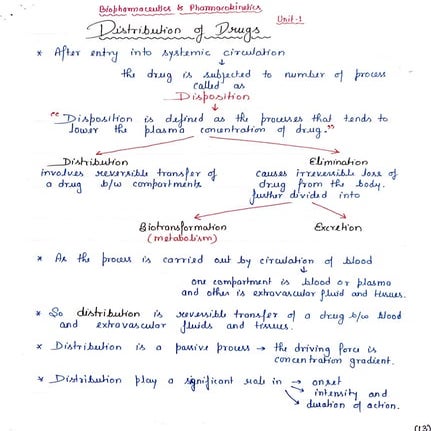 Biopharmaceutics & Pharmacokinetics
Unit-1
Distribution of Drugs
* After entry into systemic circulation
↓
the drug is subjected to number of process
called as
Disposition
↓
"Disposition is defined as the processes that tends to
lower the plasma concentration of drug."
Distribution
involves reversible transfer of
a drug b/w compartments
Elimination
causes irreversible loss of
drug from the body.
further divided into
Biotransformation
(metabolism)
Excretion
* As the process is carried out by circulation of blood
↓
one compartment is blood or plasma
and other is extravascular fluid and tissues.
* So distribution is reversible transfer of a drug b/w blood
and extravascular fluids and tissues.
* Distribution is a passive process → the driving force is
concentration gradient.
* Distribution play a significant role in → onset
→ intensity and
→ duration of action.
(13)